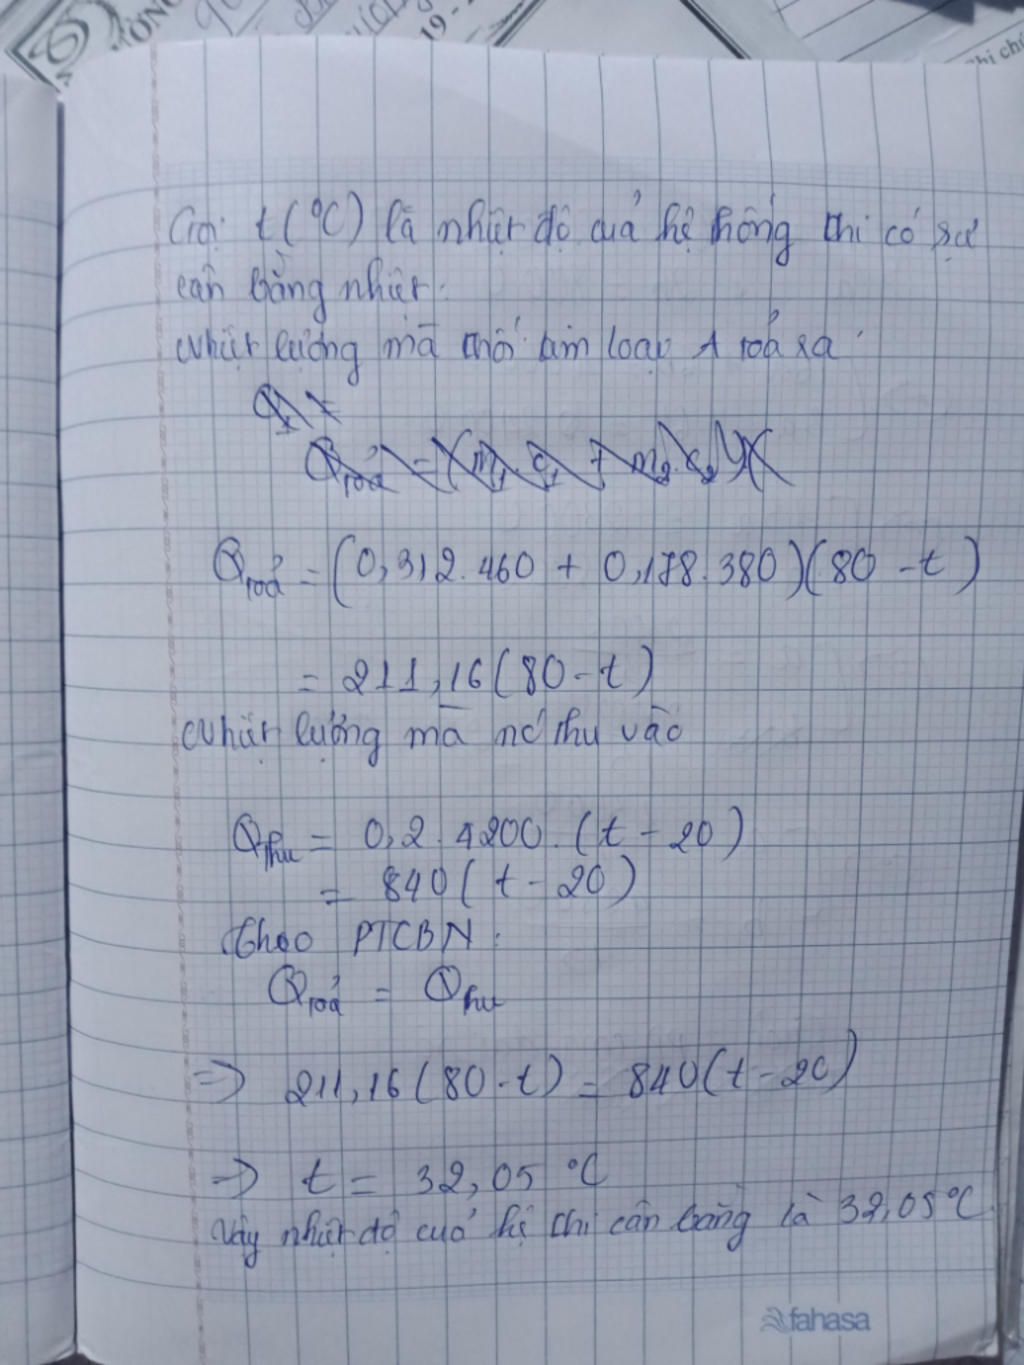 19 -
Ghi chú
Gọi t(°C) là nhiệt độ của hệ thống khi có sự
cân bằng nhiệt.
Nhiệt lượng mà khối kim loại A toả ra
Q₁ =
Qtoả = (m₁.c₁ + m₂.c₂)(
Qtoả = (0,312.460 + 0,178.380)(80 - t)
= 211,16(80 - t)
Nhiệt lượng mà nó thu vào
Qthu = 0,2.4200.(t - 20)
= 840(t - 20)
Theo PTCBN:
Qtoả = Qthu
=> 211,16(80 - t) = 840(t - 20)
=> t = 32,05 °C
Vậy nhiệt độ của hệ khi cân bằng là 32,05°C
fahasa